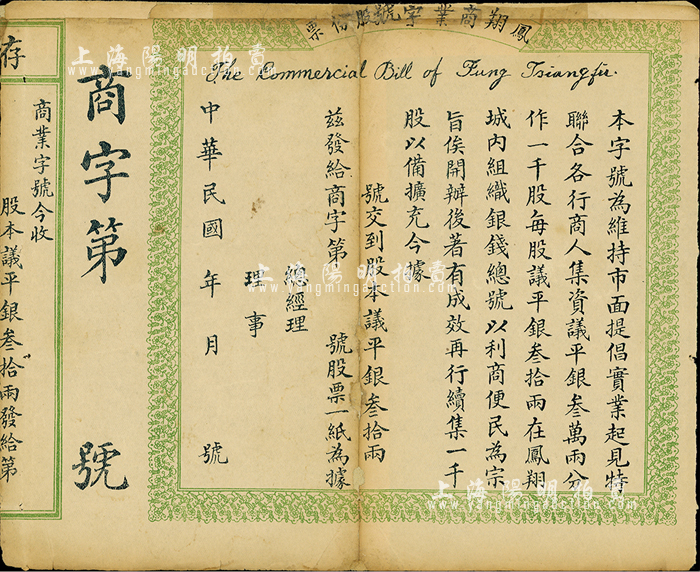 鳳翔商業字號股份票
The Commercial Bill of Fung Tsiangfu.
本字號為維持市面提倡實業起見特
聯合各行商人集資議平銀叁萬兩分
作一千股每股議平銀叁拾兩在鳳翔
城內組織銀錢總號以利商便民為宗
旨俟開辦後著有成效再行續集一千
股以備擴充今據
號交到股本議平銀叁拾兩
茲發給商字第 號股票一紙為據
總經理
理事
中華民國 年 月 號
商字第 號
存
商業字號今收
股本議平銀叁拾兩發給第
上海陽明拍賣
yangmingauction.com
上海陽明拍賣
yangmingauction.com
上海陽明拍賣
yangmingauction.com
上海陽明拍賣
yangmingauction.com